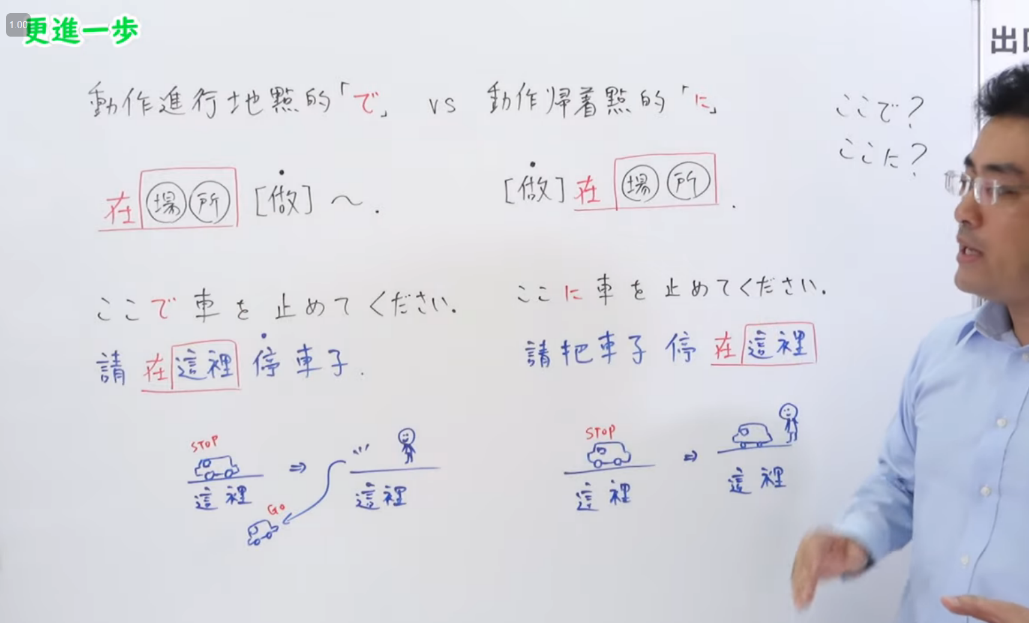 1.00
更進一步
出口
動作進行地點的「で」 vs 動作帰着點的「に」
ここで?
ここに?
在場所[做]～.
[做]在場所.
ここで車を止めてください.
ここに車を止めてください.
請在這裡停車子.
請把車子停在這裡
STOP
這裡
GO
⇒
這裡
STOP
這裡
⇒
這裡